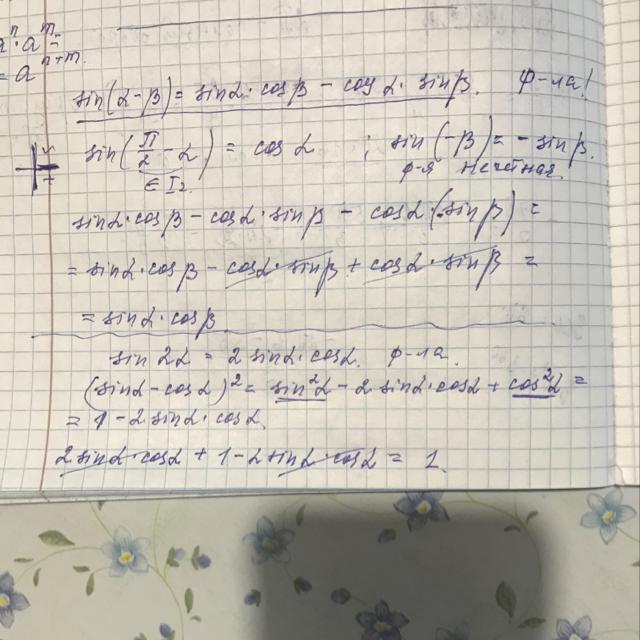 aⁿ·aᵐ=
= aⁿ⁺ᵐ
sin(α-β)= sinα·cosβ - cosα·sinβ. ф-ла!
sin(π/2 - α) = cosα ; sin(-β)= - sinβ.
∈ I г. ф-я нечётная.
sinα·cosβ - cosα·sinβ - cosα(-sinβ) =
= sinα·cosβ - cosα·sinβ + cosα·sinβ =
= sinα·cosβ
sin2α = 2sinα·cosα. ф-ла.
(sinα-cosα)² = sin²α - 2sinα·cosα + cos²α =
= 1 - 2sinα·cosα.
2sinα·cosα + 1 - 2sinα·cosα = 1.